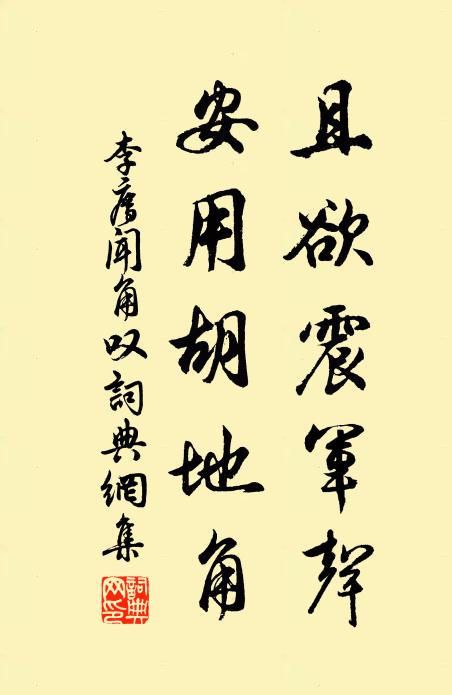 且欲震軍聲
安用胡地角
李廌聞角叹詞典網集
詞典网印